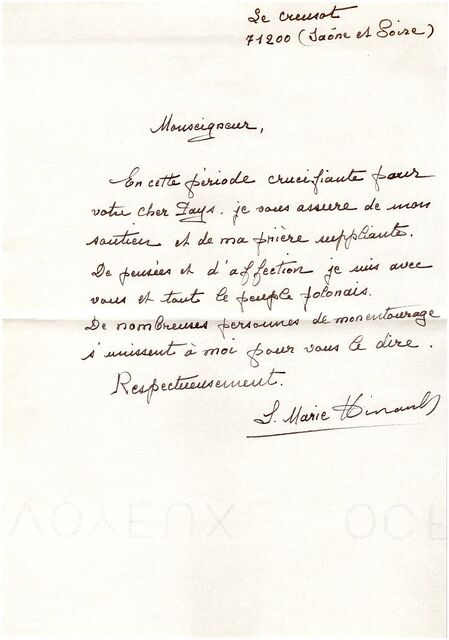 Le Creusot
71200 (Saône et Loire)
Monseigneur,
En cette période crucifiante pour
votre cher Pays. je vous assure de mon
soutien et de ma prière suppliante.
De pensées et d'affection je suis avec
vous et tout le peuple polonais.
De nombreuses personnes de mon entourage
s'unissent à moi pour vous le dire.
Respectueusement.
S. Marie Hinault
VOYEUX OCF